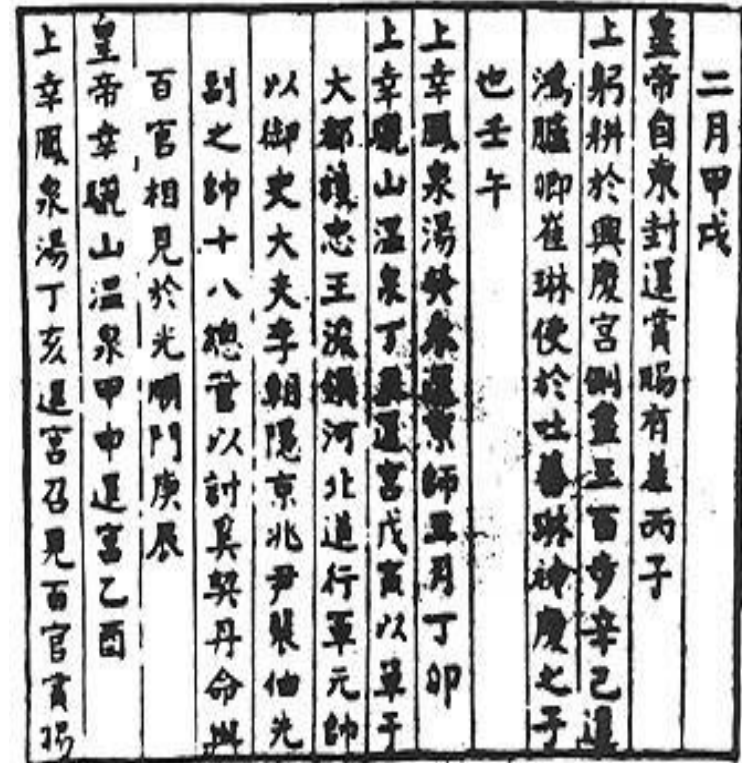 二月甲戌
皇帝自東封還賞賜有差丙子
上躬耕於興慶宮側盡三百步辛巳遣
鴻臚卿崔琳使於吐蕃琳神慶之子
也壬午
上幸鳳泉湯癸未還京師三月丁卯
上幸驪山溫泉丁亥還宮戊寅以單于
大都護忠王浚領河北道行軍元帥
以御史大夫李朝隱京兆尹裴伷先
副之帥十八總管以討奚契丹命與
百官相見於光順門庚辰
皇帝幸驪山溫泉甲申還宮乙酉
上幸鳳泉湯丁亥還宮召見百官賞賜